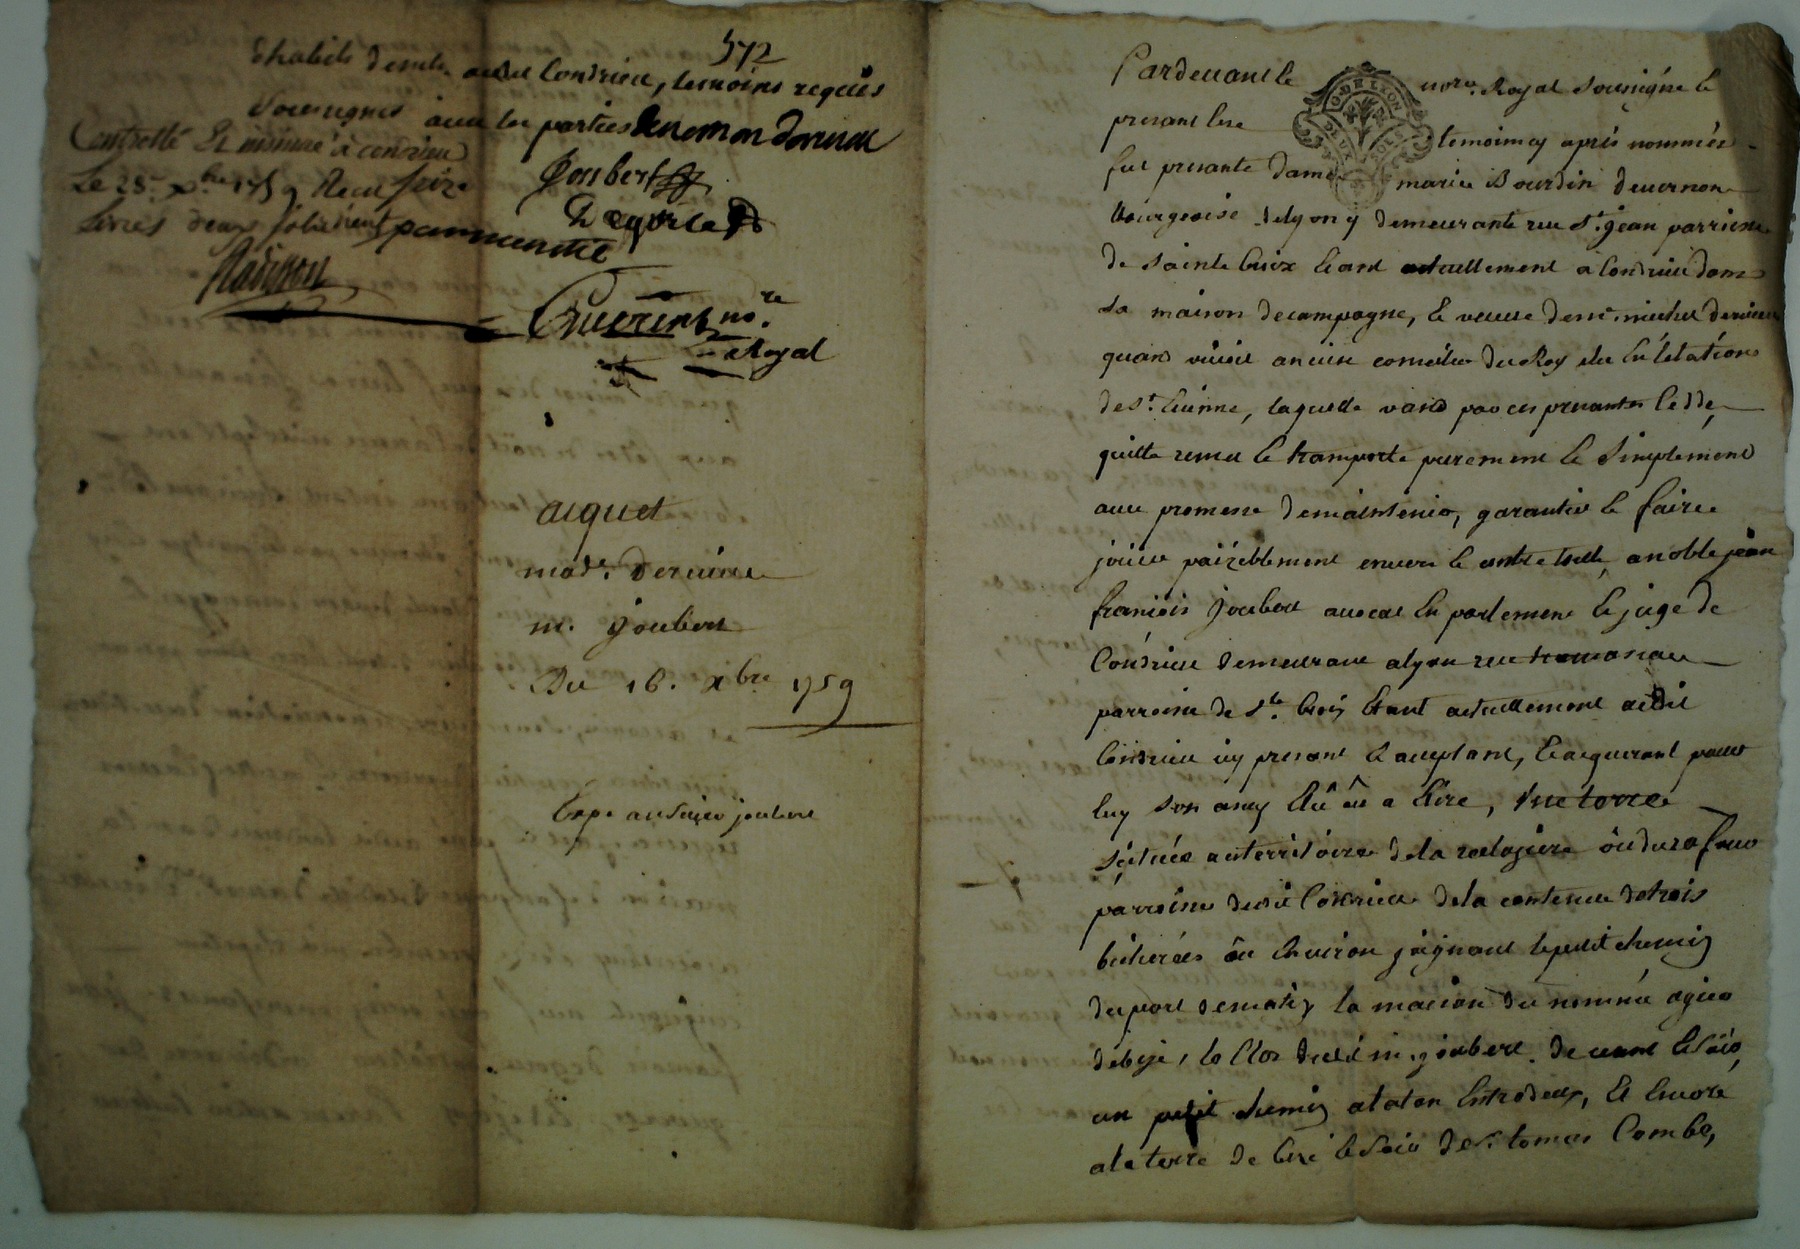 572
habits dem. audit Condrieu, temoins requis
soussignés avec les parties Devernon Dervieu
Controllé et insinué à condrieu
Le 28e xbre 1759 Recu seize
livres deux sols
Joubert
Degorle
Guerin no.re
Royal
acquet
made. dervieu
m. Joubert
Du 16. xbre 1759
Exp. au sieur joubert
Pardevant le nore. Royal soussigné le
presant les temoins cy après nommés
fut presante dame marie Bourdin devernon
bourgeoise delyon y demeurante rue St. jean parroisse
de sainte Croix etant actuellement a Condrieu dans
sa maison decampagne, et veuve de sr. michel dervieu
quand vivoit ancien conseiller du Roy elu en l'élection
de St. Etienne, laquelle vand par ces presantes cedde,
quitte remet et transporte purement et simplement
avec promesse demaintenir, garantir et faire
jouir paizeblement envers et contre tous, a noble jean
françois joubert avocat en parlement et juge de
Condrieu demeurant alyon rue
parroisse de Ste. Croix Etant actuellement audit
Condrieu icy presant et acceptant, et acquerant pour
luy son amy elû ou a Elire, une terre
scituée au territoire de la
parroisse dudit Condrieu dela contenue detrois
bicherées ou environ joignant le petit chemin
du port la maison du nommé
le Clos dudit m. joubert devant et soir,
un petit chemin entredeux, et encore
ala terre de et soir de St. tomas Combe,